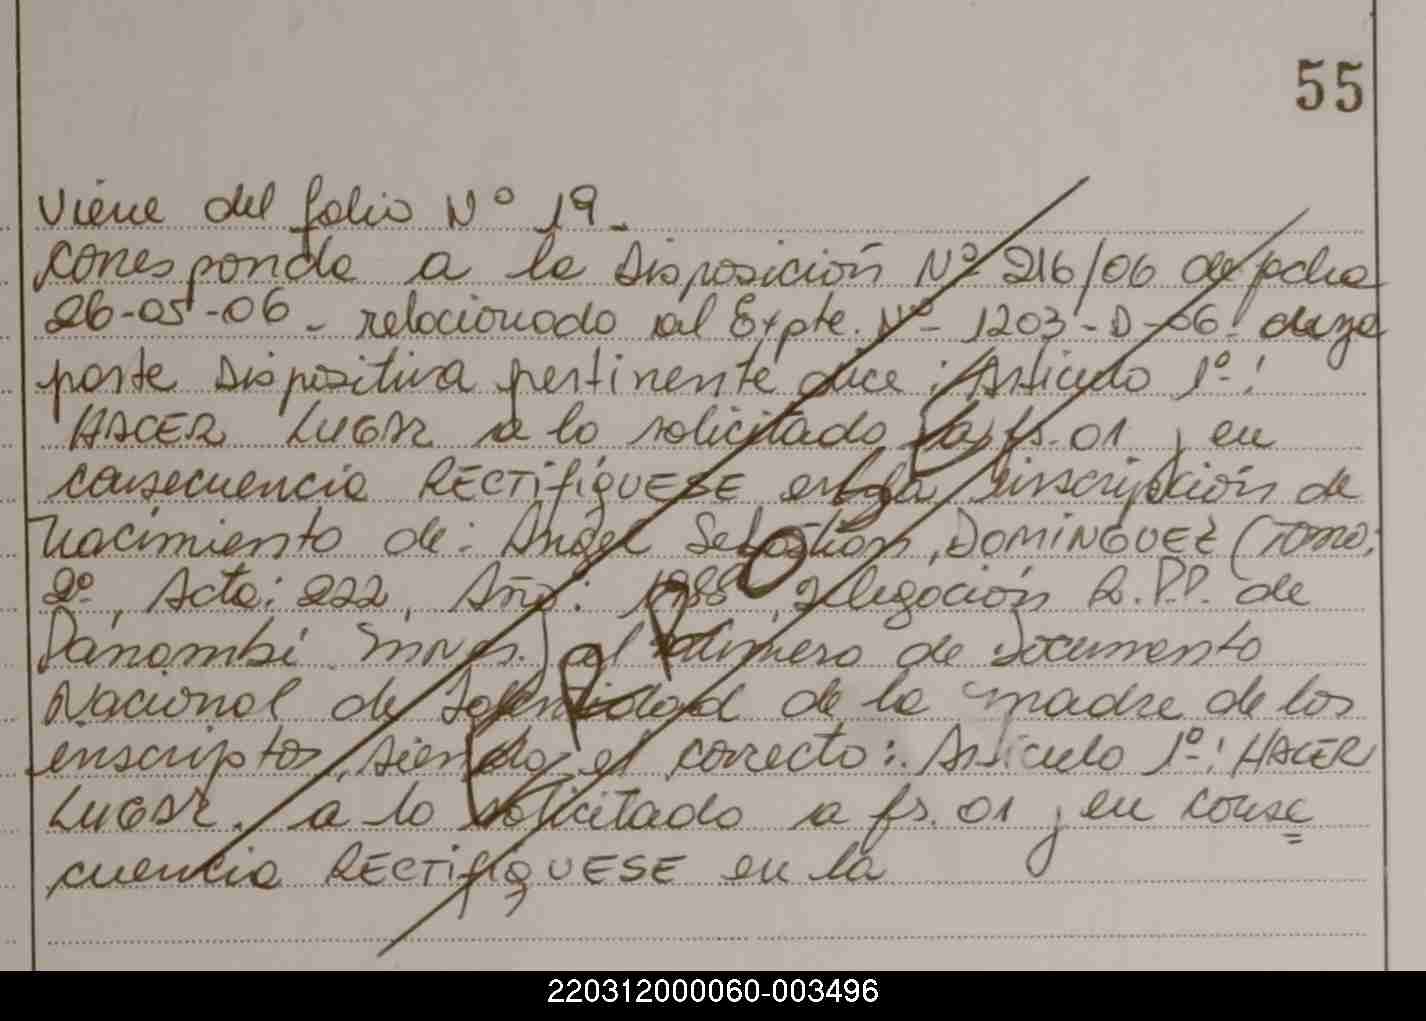 55
Viene del folio Nº 19.
Corresponde a la Disposición Nº 216/06 de fecha
26-05-06 - relacionado al Expte. Nº- 1203-D-06. cuya
parte Dispositiva pertinente dice: Articulo 1º:
HACER LUGAR a lo solicitado a fs. 01 y en
consecuencia RECTIFÍQUESE en la inscripción de
nacimiento de: Angel Sebastián, DOMINGUEZ (Tomo:
2º, Acta: 222, Año: 1988, Delegación R.P.P. de
Panambí Mnes.) el número de Documento
Nacional de Identidad de la madre de los
inscriptos, siendo el correcto: Articulo 1º: HACER
LUGAR. a lo solicitado a fs. 01 y en conse
cuencia RECTIFIQUESE en la
ERROR
220312000060-003496